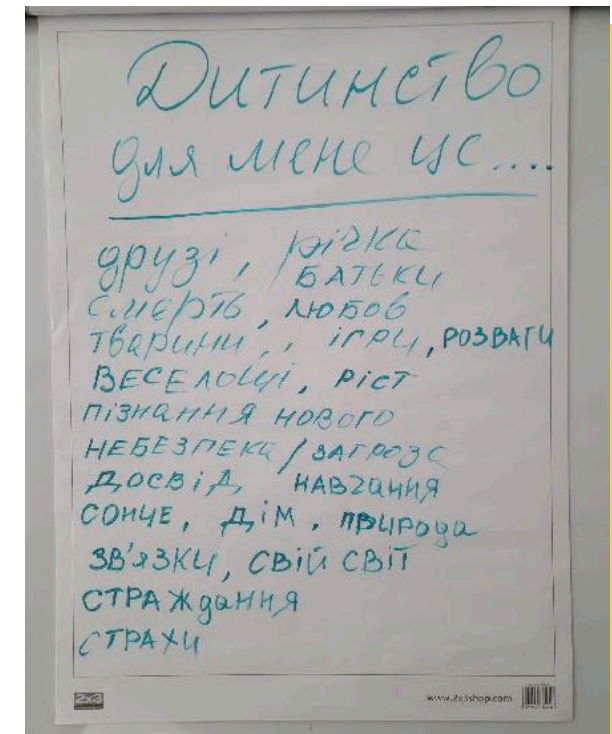 Дитинство
для мене це....
друзі, річка
БАТЬКИ
смерть, любов
тварини, , ігри, РОЗВАГИ
ВЕСЕЛОЩІ, РІСТ
пізнання нового
НЕБЕЗПЕКА/ЗАГРОЗС
ДОСВІД, НАВЧАННЯ
СОНЦЕ, ДІМ, ПРИРОДА
ЗВ'ЯЗКИ, СВІЙ СВІТ
СТРАЖДАННЯ
СТРАХИ
2x3
www.2x3shop.com